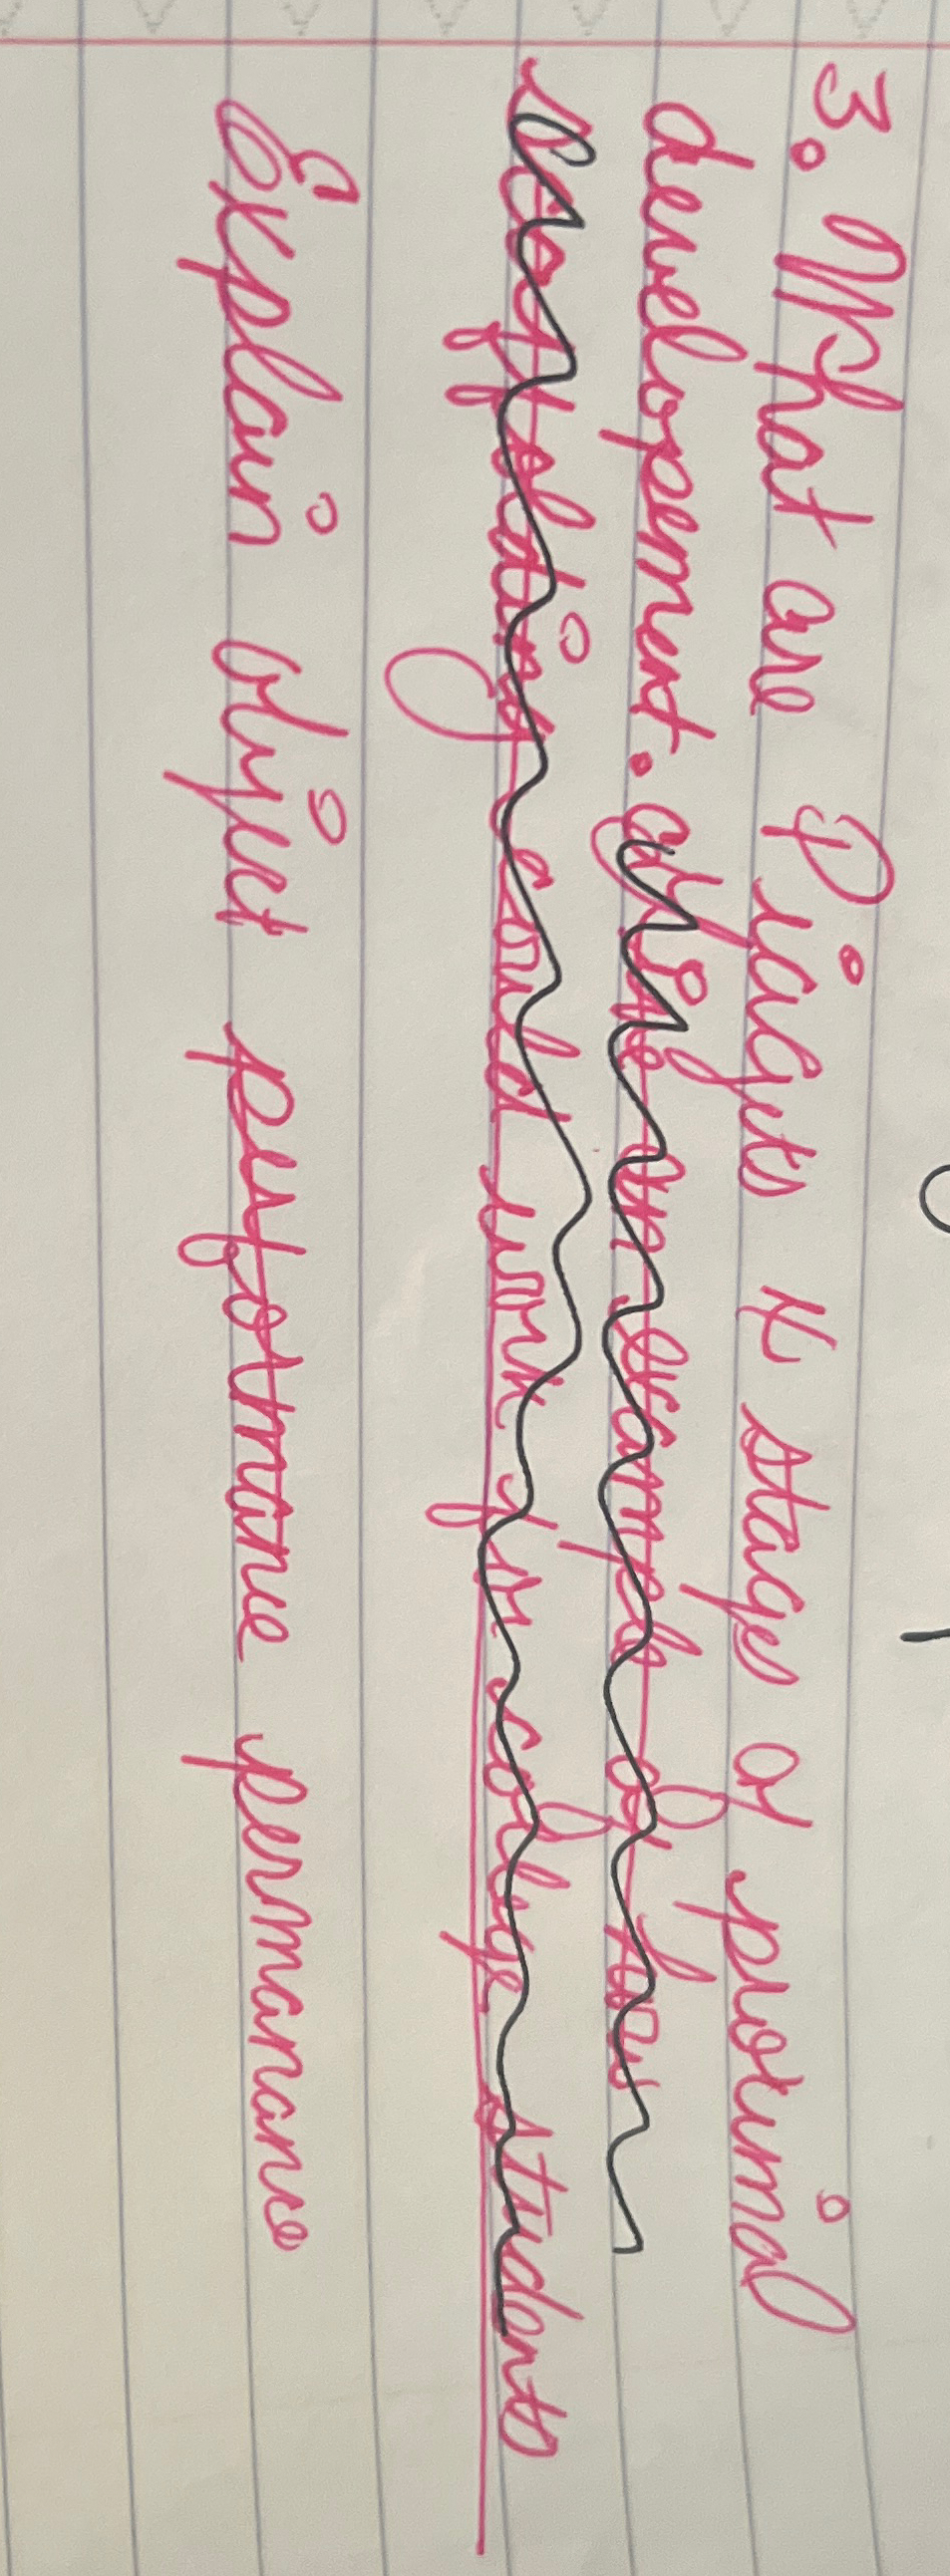 3. What are Piagets 4 stages of proximal
development. give an example of how
scaffolding could work for college students
Explain object perfotmane permanance